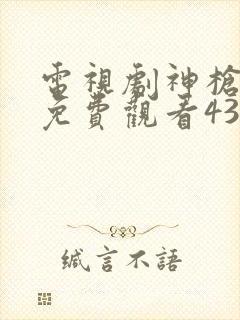 電視劇神槍
免費觀看43
緘言不語